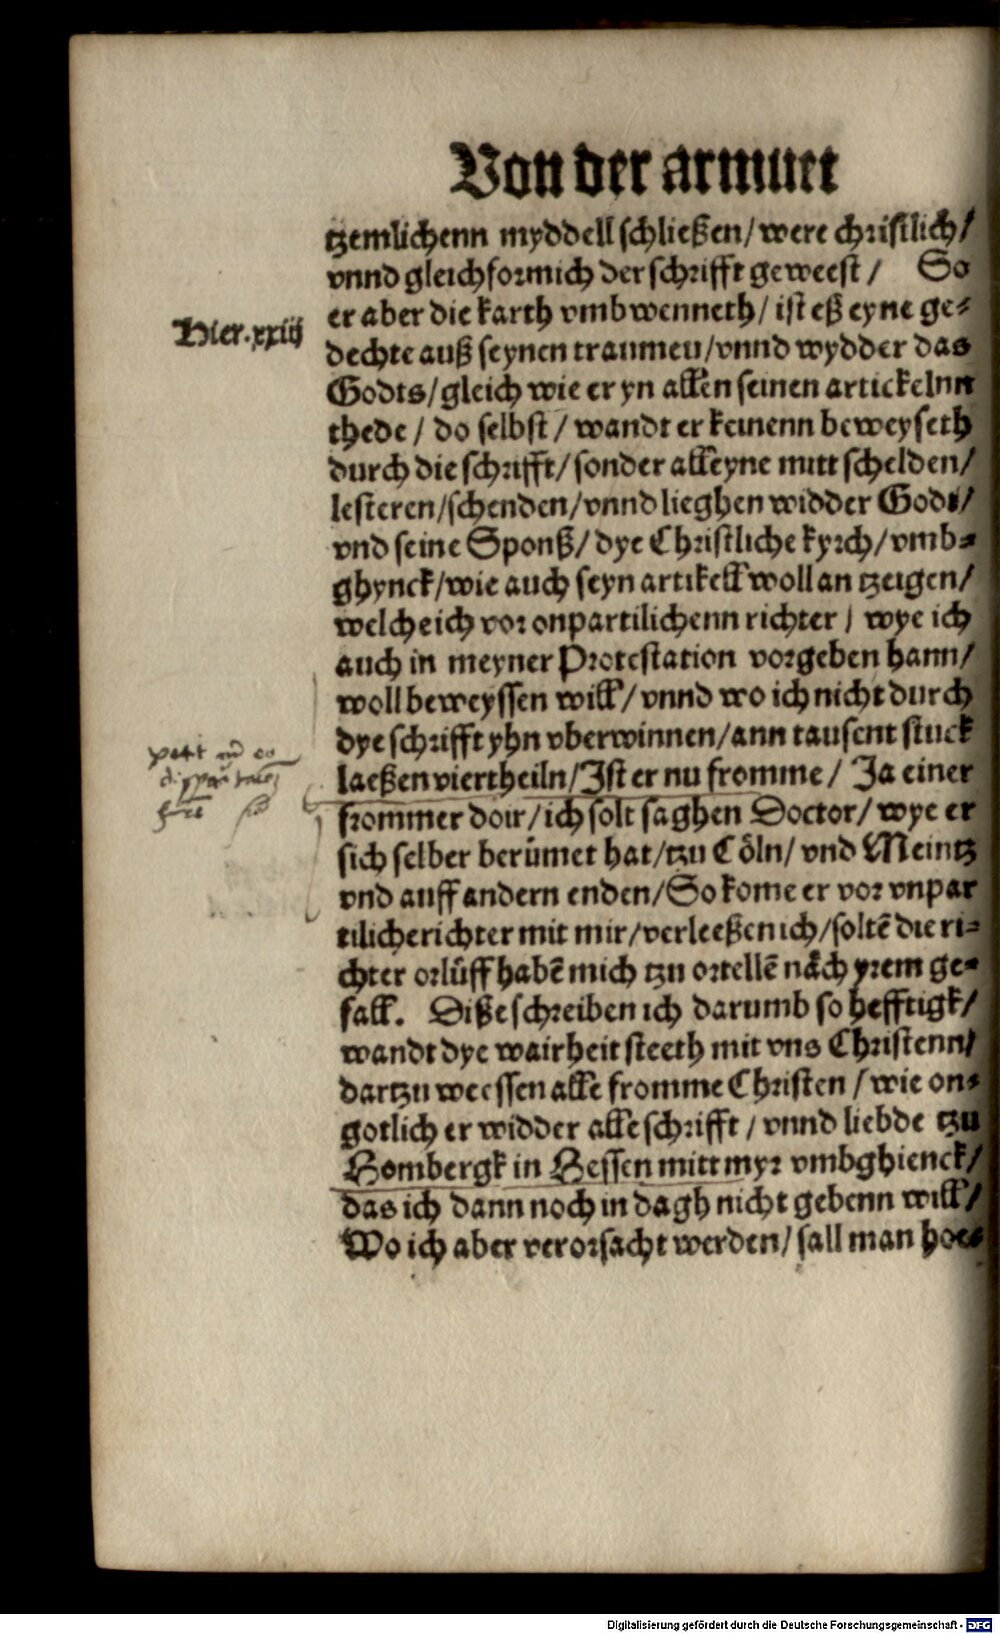 Von der armuet
tzemlichenn myddell schließen/were christlich/
vnnd gleichformich der schrifft geweest / So
er aber die karth vmbwenneth/ ist eß eyne ge⸗
Hier.xxiij
dechte auß seynen traumen/vnnd wydder das
Godts/gleich wie er yn allen seinen artickelnn
thede / do selbst / wandt er keinenn beweyseth
durch die schrifft/ sonder alleyne mitt schelden/
lesteren/schenden/vnnd lieghen widder Godt/
vnd seine Sponß/ dye Christliche kyrch/vmb⸗
ghynck/wie auch seyn artikell woll an tzeigen/
welche ich vor onpartilichenn richter / wye ich
auch in meyner Protestation vorgeben hann/
woll beweyssen will/ vnnd wo ich nicht durch
dye schrifft yhn vberwinnen/ann tausent stuck
laeßen viertheiln/Ist er nu fromme / Ja einer
frommer doir/ich solt saghen Doctor/ wye er
sich selber berümet hat/tzu Cöln/ vnd Meintz
vnd auff andern enden/So kome er vor vnpar
tilicherichter mit mir/verleeßen ich/soltē die ri⸗
chter orlüff habē mich tzu ortellē näch yrem ge⸗
fall. Diße schreiben ich darumb so hefftigk/
wandt dye wairheit steeth mit vns Christenn/
dartzu weessen alle fromme Christen / wie on⸗
gotlich er widder alle schrifft / vnnd liebde tzu
Hombergk in Hessen mitt myr vmbghienck/
das ich dann noch in dagh nicht gebenn will/
Wo ich aber verorsacht werden/ sall man hoe⸗
Digitalisierung gefördert durch die Deutsche Forschungsgemeinschaft - DFG